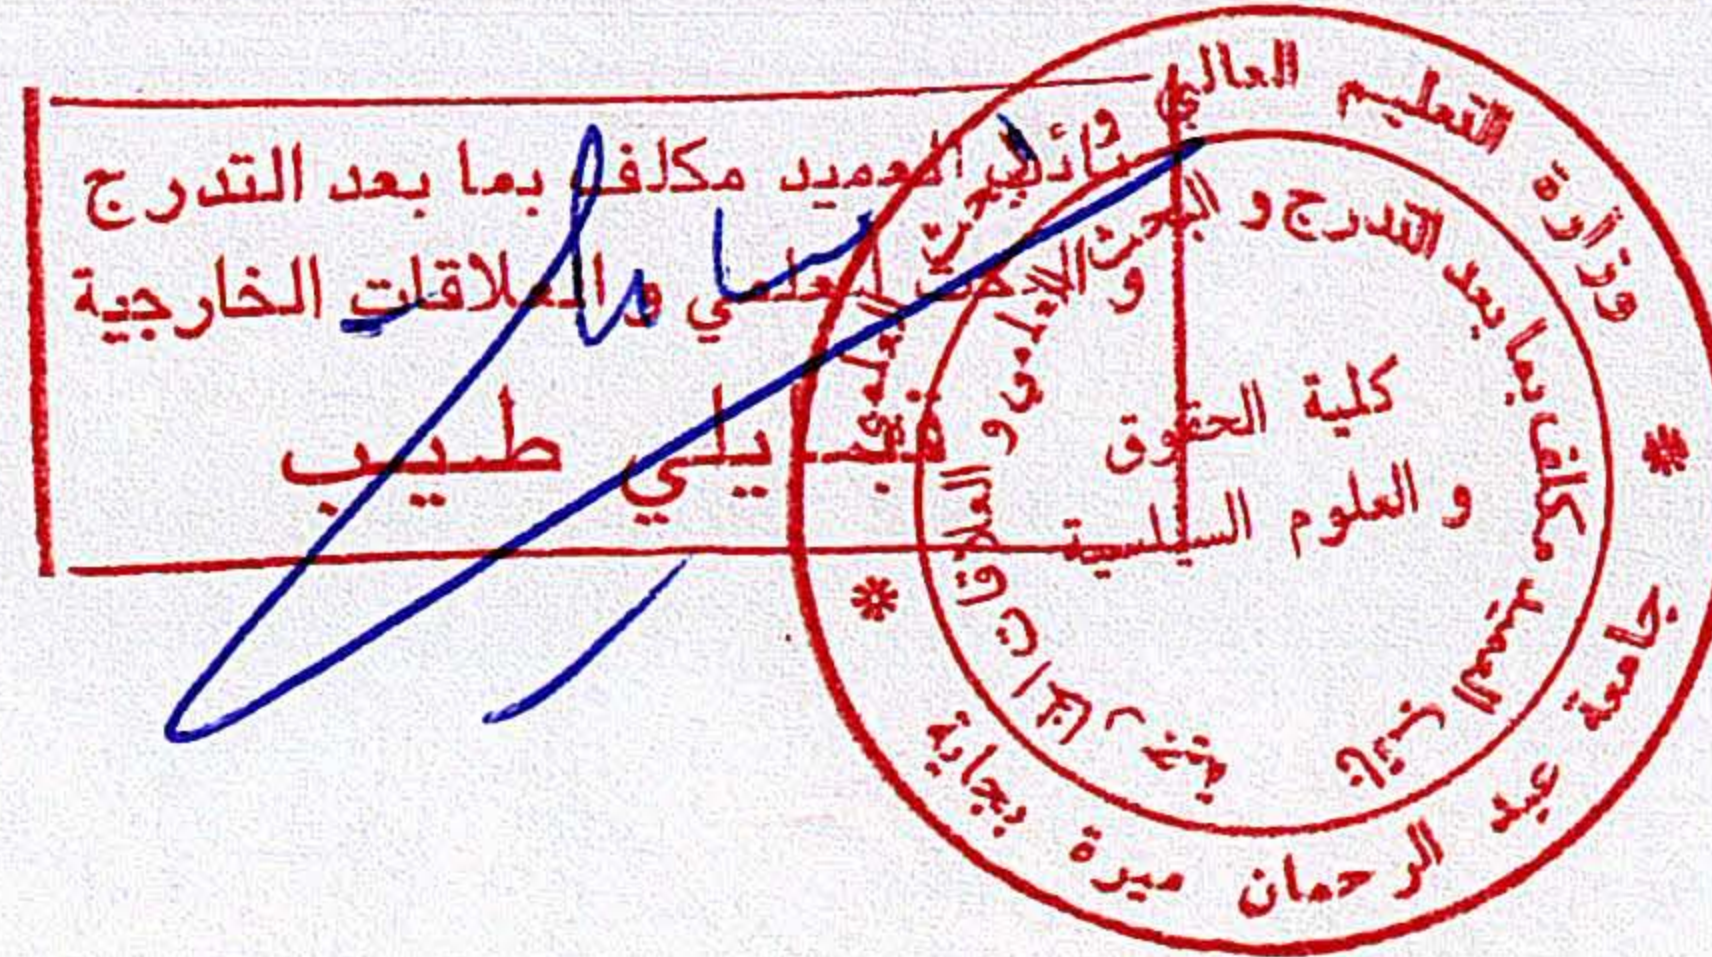 نائب العميد مكلف بما بعد التدرج
و البحث العلمي و العلاقات الخارجية
قبايلي طيب
وزارة التعليم العالي و البحث العلمي
جامعة عبد الرحمان ميرة بجاية
نائب العميد مكلف بما بعد التدرج و البحث العلمي و العلاقات الخارجية
كلية الحقوق
و العلوم السياسية